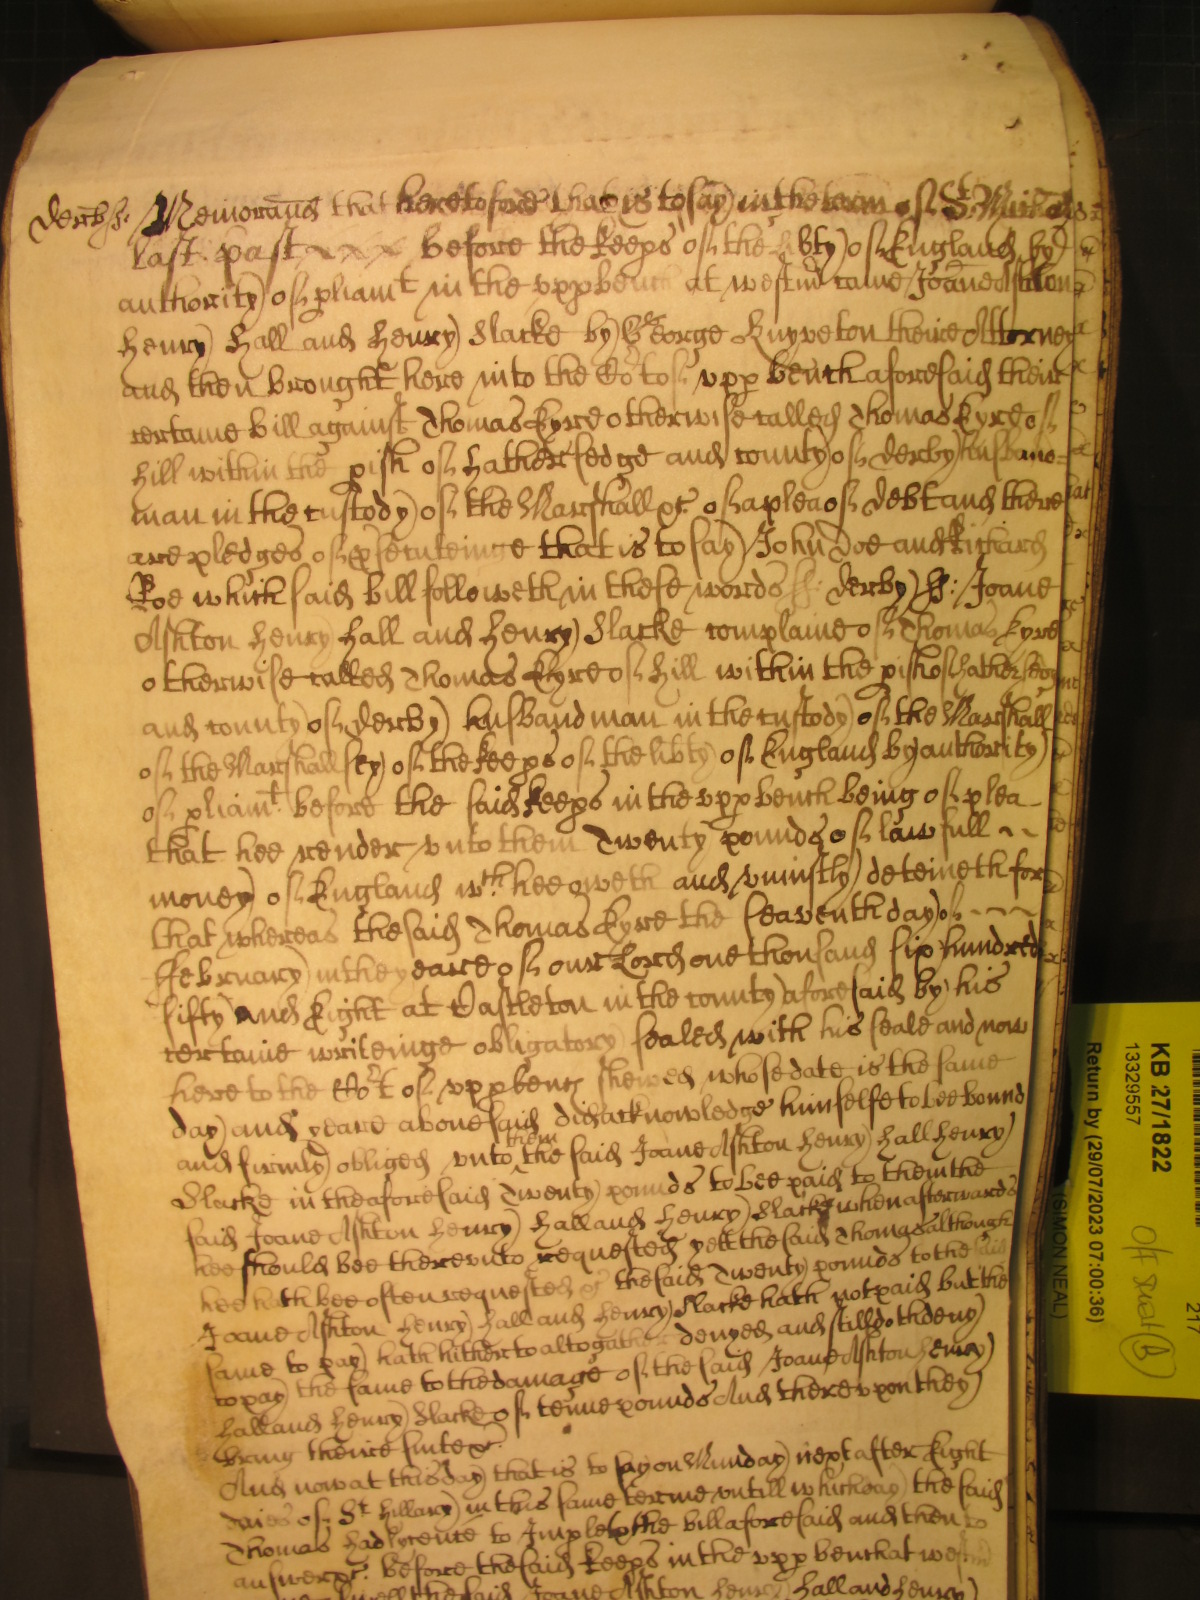 Derb ss: Memorand that heretofore that is to say in the term of St. Mich
last past before the keeps of the libty of England by
authority of pliamt in the upp bench at westm came Joane Ashton
Henry Hall and Henry Slacke by George Knyveton theire Attorney
and then brought here into the Cort of upp bench aforesaid their
certaine bill against Thomas Eyre otherwise called Thomas Eyre of
Hill within the pish of Hathersedge and county of Derby husband
man in the custody of the Marshall &c of a plea of debt and there
are pledges of psecuteinge that is to say John Doe and Richard
Roe which said bill followeth in these words ss: Derby ss: Joane
Ashton Henry Hall and Henry Slacke complaine of Thomas Eyre
otherwise called Thomas Eyre of Hill within the pish of Hathersedge
and county of Derby husbandman in the custody of the Marshall
of the Marshallsey of the keeps of the libty of England by authority
of pliamt before the said keeps in the upp bench being of plea
that hee render unto them Twenty pounds of lawfull
money of England wch hee oweth and uniustly deteineth for
that whereas the said Thomas Eyre the seaventh day of
ffebruary in the yeare of our Lord one thousand six hundred
fifty and Eight at Castleton in the county aforesaid by his
certaine writeinge obligatory sealed with his seale and now
here to the Cort of upp bench shewed whose date is the same
day and yeare abovesaid did acknowledge himselfe to bee bound
and firmly obliged unto them the said Joane Ashton Henry Hall Henry
Slacke in the aforesaid Twenty pounds to bee paid to them the
said Joane Ashton Henry Hall and Henry Slacke when afterwards
hee should bee thereunto requested yett the said Thomas although
hee hath bee often requested &c the said Twenty pounds to the said
Joane Ashton Henry Hall and Henry Slacke hath not paid but the
same to pay hath hitherto altogather denyed and still doth deny
to pay the same to the damage of the said Joane Ashton Henry
Hall and Henry Slacke of tenne pounds And thereupon they
bring theire suite &c.
And now at this day that is to say on Munday next after Eight
daies of St Hillary in this same terme untill which day the said
Thomas had lycence to Imple to the bill aforesaid and then to
answer &c. before the said keeps in the upp bench at westm
the said Joane Ashton Henry Hall and Henry
KB 27/1822
13329557
Return by (29/07/2023 07:00:36)
(SIMON NEAL)
217